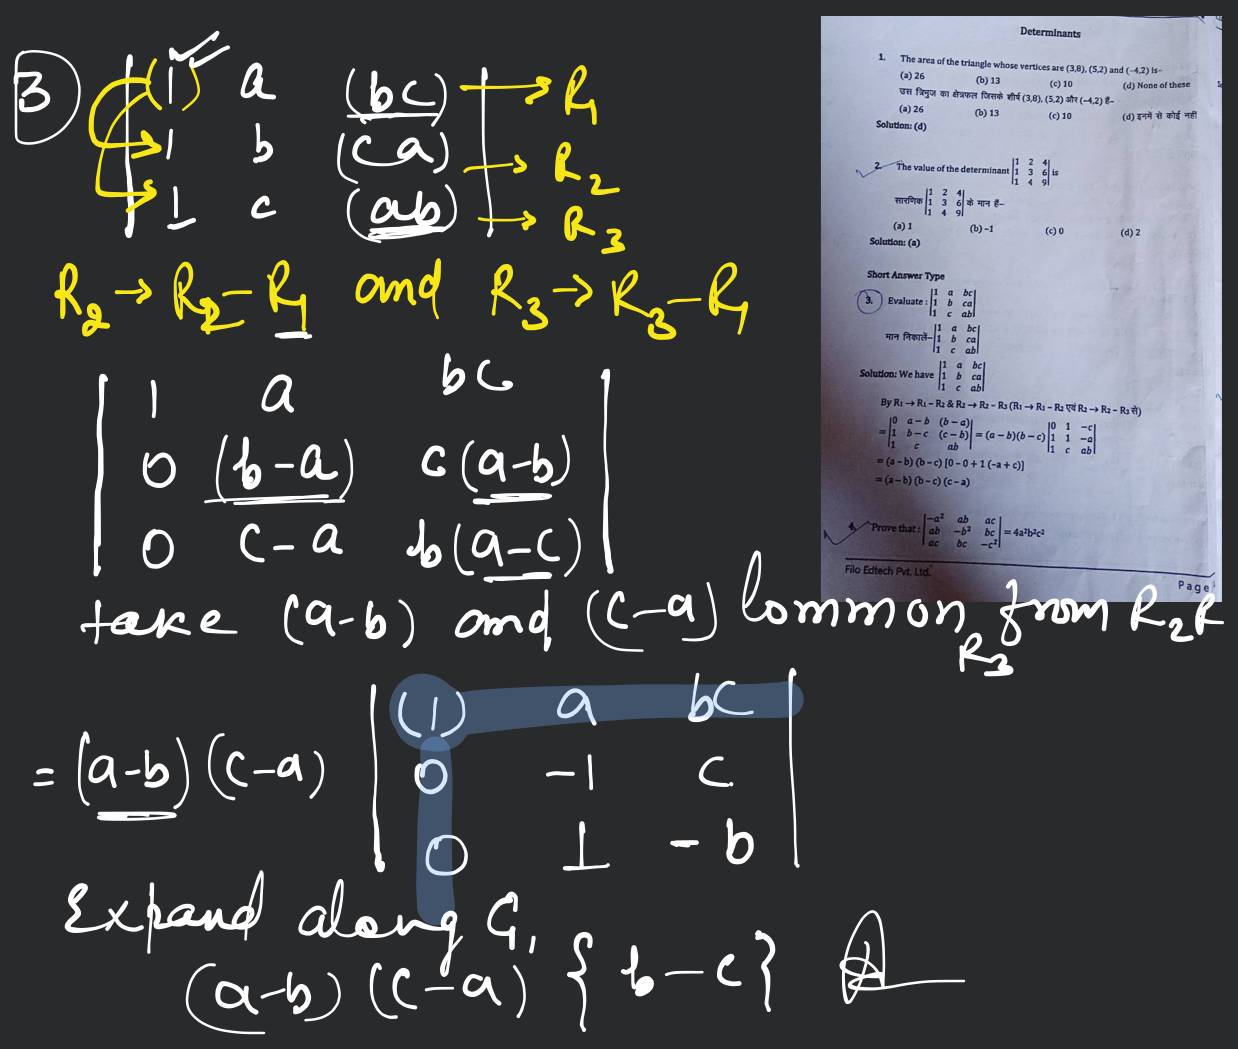 3
| 1 a (bc) | → R1
| 1 b (ca) | → R2
| 1 c (ab) | → R3
R2 → R2 - R1 and R3 → R3 - R1
| 1 a bc |
| 0 (b-a) c(a-b) |
| 0 c-a b(a-c) |
take (a-b) and (c-a) common from R2 &
R3
= (a-b) (c-a) | (1) a bc |
| 0 -1 c |
| 0 1 -b |
Expand along C1,
(a-b) (c-a) { b-c }
Determinants
1. The area of the triangle whose vertices are (3,8), (5,2) and (-4,2) is-
(a) 26 (b) 13 (c) 10 (d) None of these
उस त्रिभुज का क्षेत्रफल जिसके शीर्ष (3,8), (5,2) और (-4,2) हैं-
(a) 26 (b) 13 (c) 10 (d) इनमें से कोई नहीं
Solution: (d)
2. The value of the determinant |1 2 4| is
|1 3 6|
|1 4 9|
सारणिक |1 2 4| के मान हैं-
|1 3 6|
|1 4 9|
(a) 1 (b) -1 (c) 0 (d) 2
Solution: (a)
Short Answer Type
3. Evaluate : |1 a bc|
|1 b ca|
|1 c ab|
मान निकालें- |1 a bc|
|1 b ca|
|1 c ab|
Solution: We have |1 a bc|
|1 b ca|
|1 c ab|
By R1 → R1 - R2 & R2 → R2 - R3 (R1 → R1 - R2 एवं R2 → R2 - R3 से)
= |0 a-b (b-a)| = (a-b)(b-c) |0 1 -c|
|1 b-c (c-b)| |1 1 -a|
|1 c ab| |1 c ab|
= (a-b) (b-c) [0-0+1 (-a+c)]
= (a-b) (b-c) (c-a)
4. Prove that : |-a² ab ac| = 4a²b²c²
|ab -b² bc|
|ac bc -c²|
Filo Edtech Pvt. Ltd.
Page